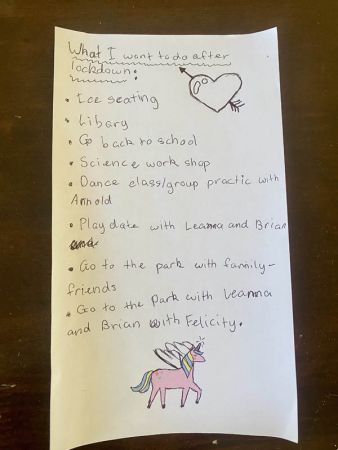 What I want to do after
lockdown:
• Ice seating
• Libary
• Go back to school
• Science work shop
• Dance class/group practic with
Arnold
• Play date with Leanna and Brian
• Go to the park with family-
friends
• Go to the Park with Leanna
and Brian with Felicity.